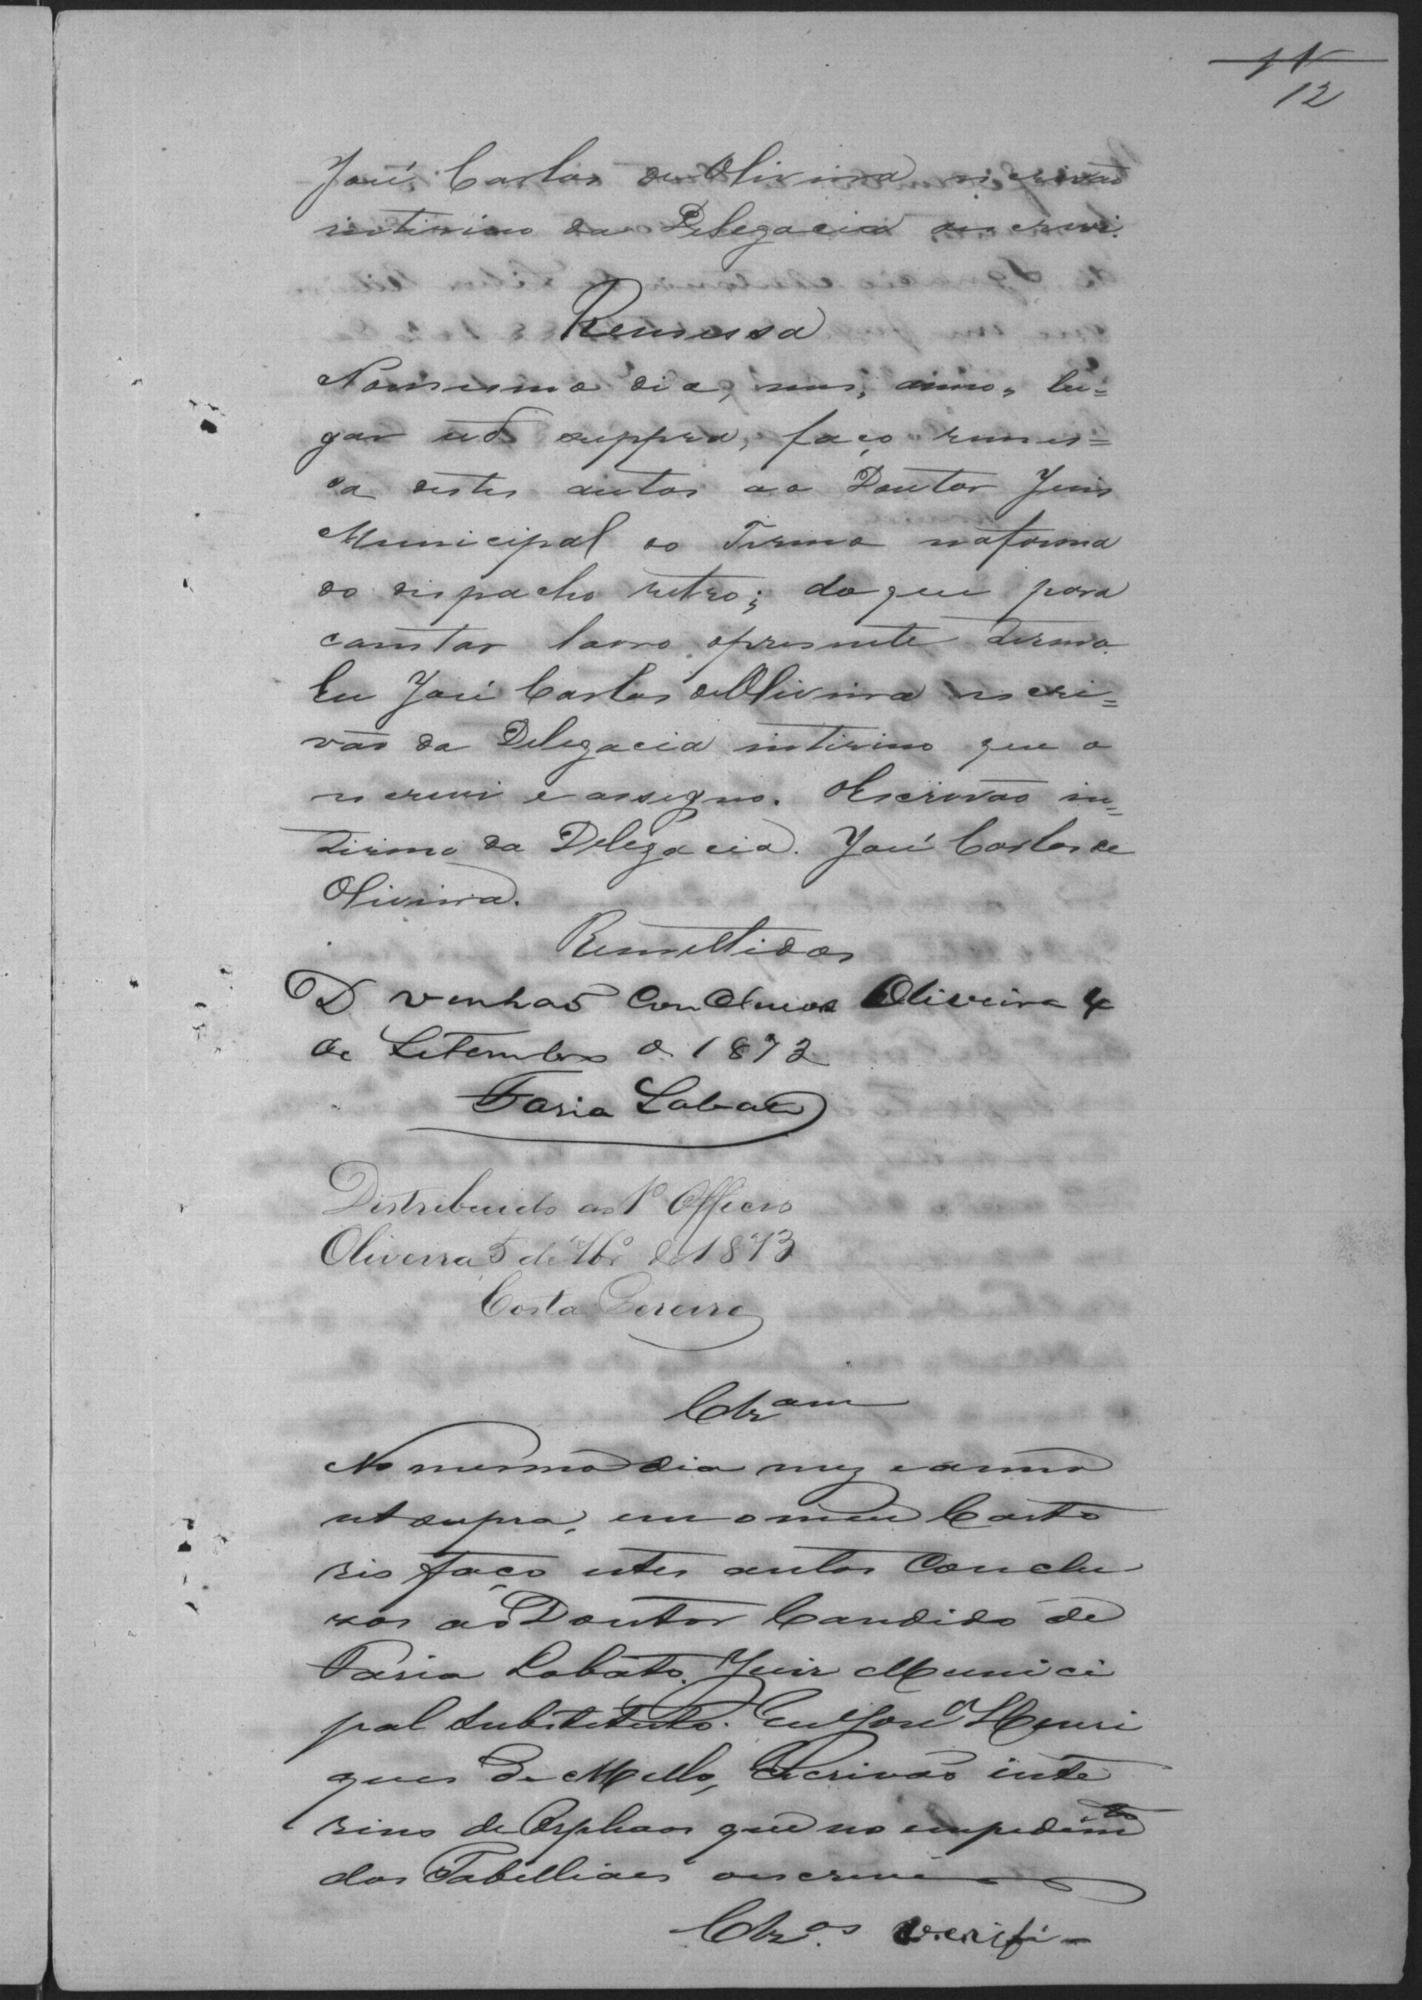 12
José Carlos de Oliveira escrivão
interino da Delegacia o escrevi.
Remessa
No mesmo dia, mes, anno, lu=
gar ut suppra, faço remes=
sa destes autos ao Doutor Juis
Municipal do Termo na forma
do dispacho retro; do que para
constar lavro o presente termo.
Eu José Carlos de Oliveira escri=
vão da Delegacia interino que o
escrevi e assegno. O Escrivão in=
terino da Delegacia. José Carlos de
Oliveira.
Remettidos
D. venhão Concluzos Oliveira 4
de Setembro de 1873
Faria Lobato
Distribuido ao 1º Officio
Oliveira 5 de 7brº de 1873
Costa Pereira
Clzam
No mesmo dia mez e anno
ut supra, em o meu Carto
rio faço estes autos Conclu
zos ao Doutor Candido de
Faria Lobato, Juiz Munici
pal Substituto. Eu José Henri
ques de Mello, Escrivão inte
rino de Orphaos que no empedimto
dos Tabelliaes o escrevi
Clzos. Verifi-